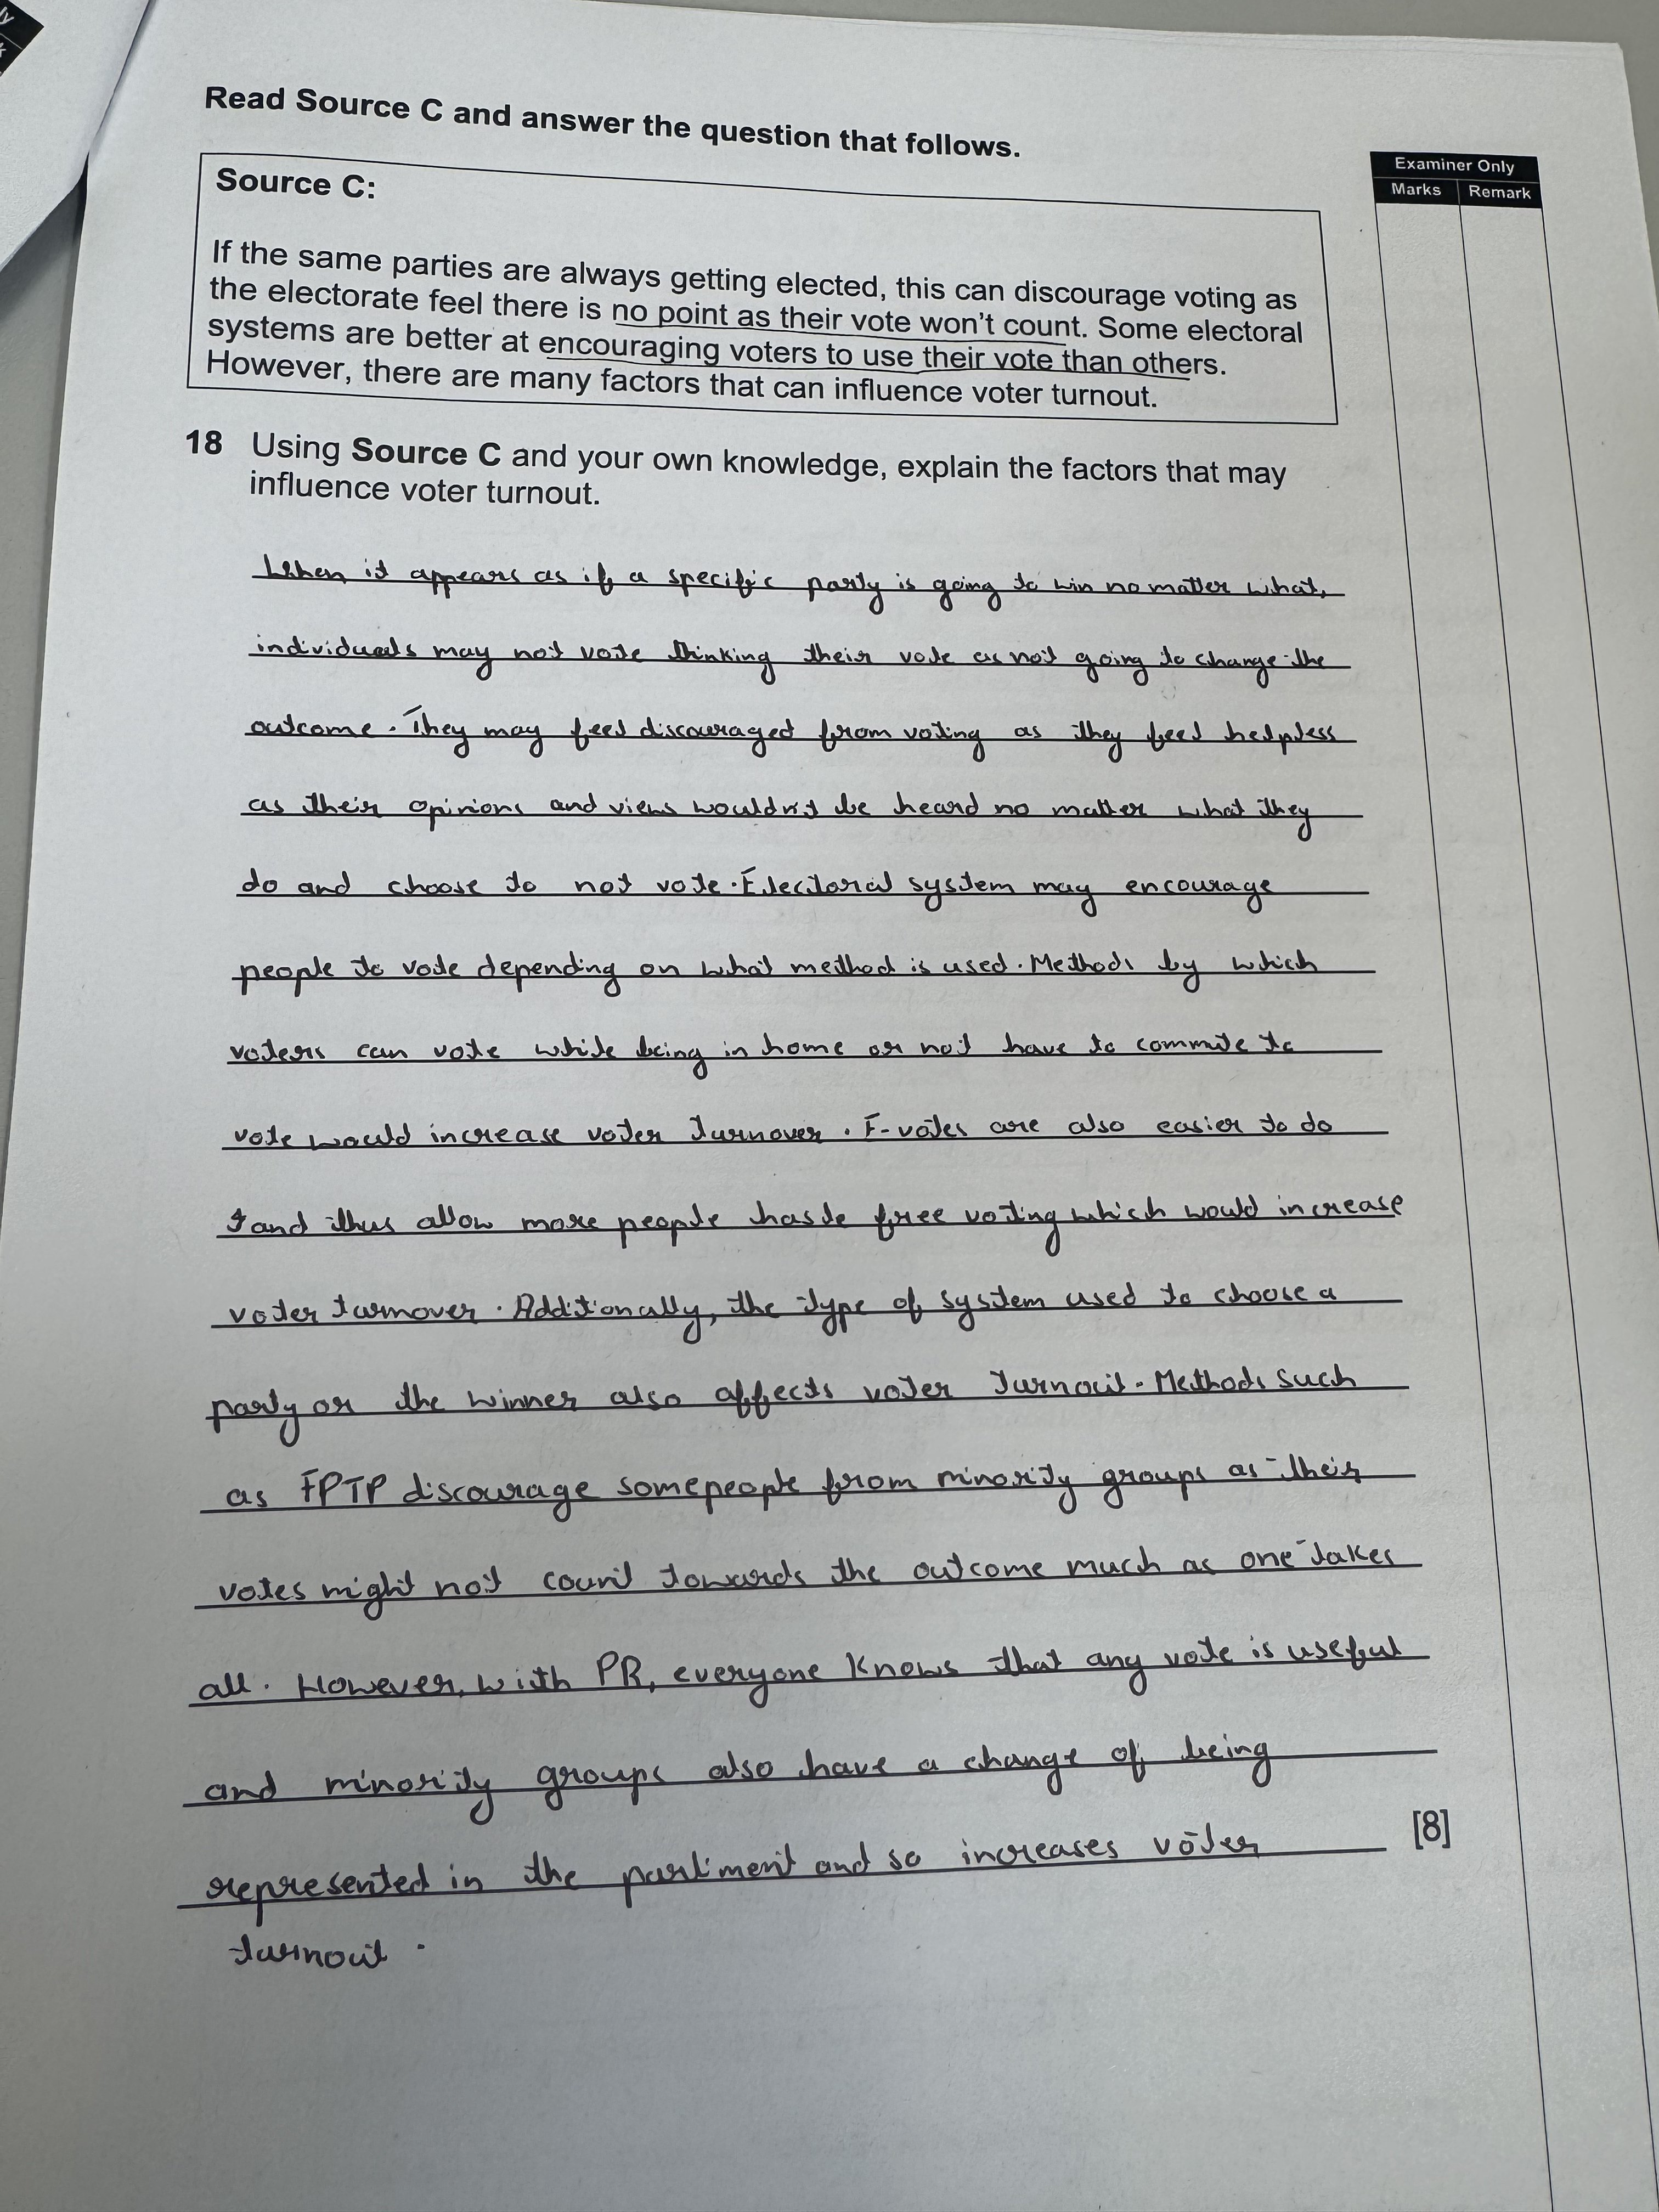 Read Source C and answer the question that follows.
Examiner Only
Marks Remark
Source C:
If the same parties are always getting elected, this can discourage voting as
the electorate feel there is no point as their vote won't count. Some electoral
systems are better at encouraging voters to use their vote than others.
However, there are many factors that can influence voter turnout.
18 Using Source C and your own knowledge, explain the factors that may
influence voter turnout.
When it appears as if a specific party is going to win no matter what,
individuals may not vote thinking their vote is not going to change the
outcome. They may feel discouraged from voting as they feel helpless
as their opinions and views wouldn't be heard no matter what they
do and choose to not vote. Electoral system may encourage
people to vote depending on what method is used. Methods by which
voters can vote while being in home or not have to commute to
vote would increase voter turnover. E-votes are also easier to do
and thus allow more people hasle free voting which would increase
voter turnover. Additionally, the type of system used to choose a
party or the winner also affects voter turnout. Methods such
as FPTP discourage some people from minority groups as their
votes might not count towards the outcome much as one takes
all. However, with PR, everyone knows that any vote is useful
and minority groups also have a change of being
represented in the parliment and so increases voter
[8]
turnout.